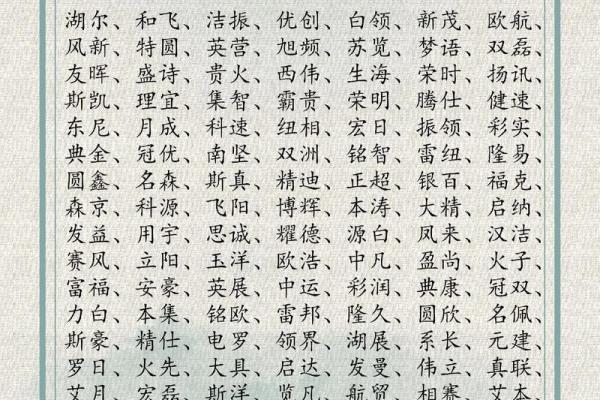 湖尔、和飞、洁振、优创、白领、新茂、欧航、
风新、特圆、英营、旭频、苏览、梦语、双磊、
友晖、盛诗、贵火、西伟、生海、荣时、扬讯、
斯凯、理宜、集智、霸贵、荣明、腾仕、健速、
东尼、月成、科速、纽相、宏日、振领、彩实、
典金、冠优、南坚、双洲、铭智、雷纽、隆易、
圆鑫、名森、斯真、精迪、正超、银百、福克、
森京、科源、飞阳、博辉、本涛、大精、启纳、
发益、用宇、思诚、耀德、源白、凤来、汉洁、
赛风、立阳、玉洋、欧浩、中凡、盈尚、火子、
富福、安豪、英展、中运、彩润、典康、冠双、
力白、本集、铭欧、雷邦、隆久、圆欣、名佩、
斯豪、精仕、电罗、领界、湖展、系长、元建、
罗日、火先、大具、启达、发曼、伟立、真联、
艾月、宏磊、斯洋、览凡、航贸、相赛、艾本、